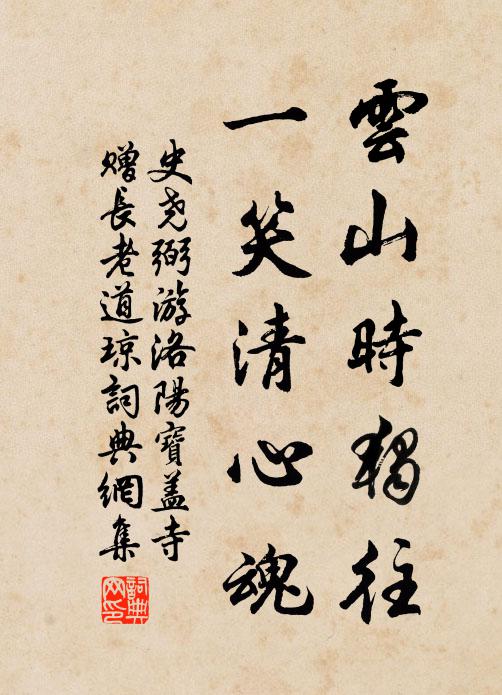 雲山時獨往
一笑清心魂
史尧弼游洛陽寶盖寺
赠長老道琼詞典網集
詞典
网印